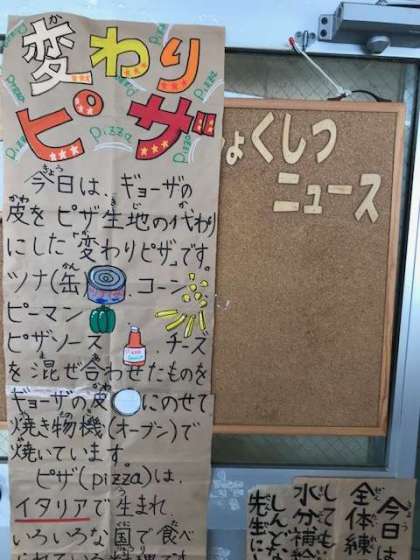 変わり
ピザ
Pizza
Pizza
Pizza
Pizza
Pizza
今日は、ギョーザの
皮をピザ生地の代わり
にした「変わりピザ」です。
ツナ(缶)、コーン
ピーマン
ピザソース、チーズ
を混ぜ合わせたものを
ギョーザの皮にのせて
焼き物機(オーブン)で
焼いています。
ピザ(pizza)は、
イタリアで生まれ、
いろいろな国で食べ
られている
ょくしつ
ニュース
今日は
全体練
しても
水分補
しんど
先生に